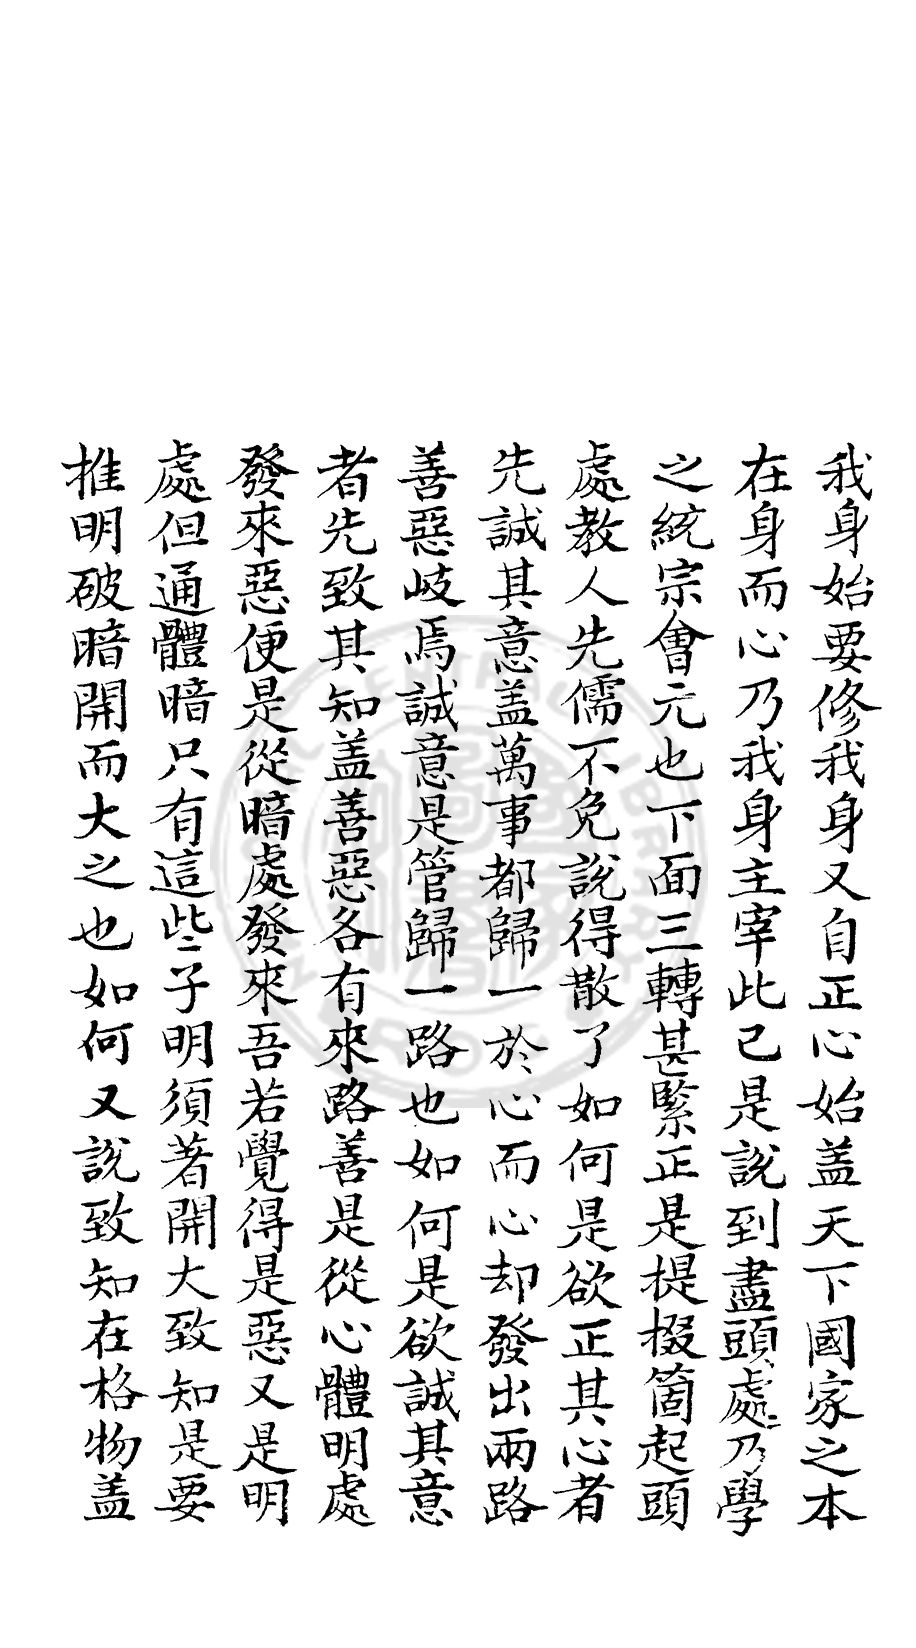 我身始要修我身又自正心始盖天下國家之本
在身而心乃我身主宰此已是說到盡頭處〻乃學
之統宗會元也下面三轉甚緊正是提掇箇起頭
處教人先儒不免說得散了如何是欲正其心者
先誠其意盖萬事都歸一於心而心却發出兩路
善惡岐焉誠意是管歸一路也如何是欲誠其意
者先致其知盖善惡各有來路善是從心體明處
發來惡便是從暗處發來吾若覺得是惡又是明
處但通體暗只有這些〻子明須著開大致知是要
推明破暗開而大之也如何又說致知在格物盖